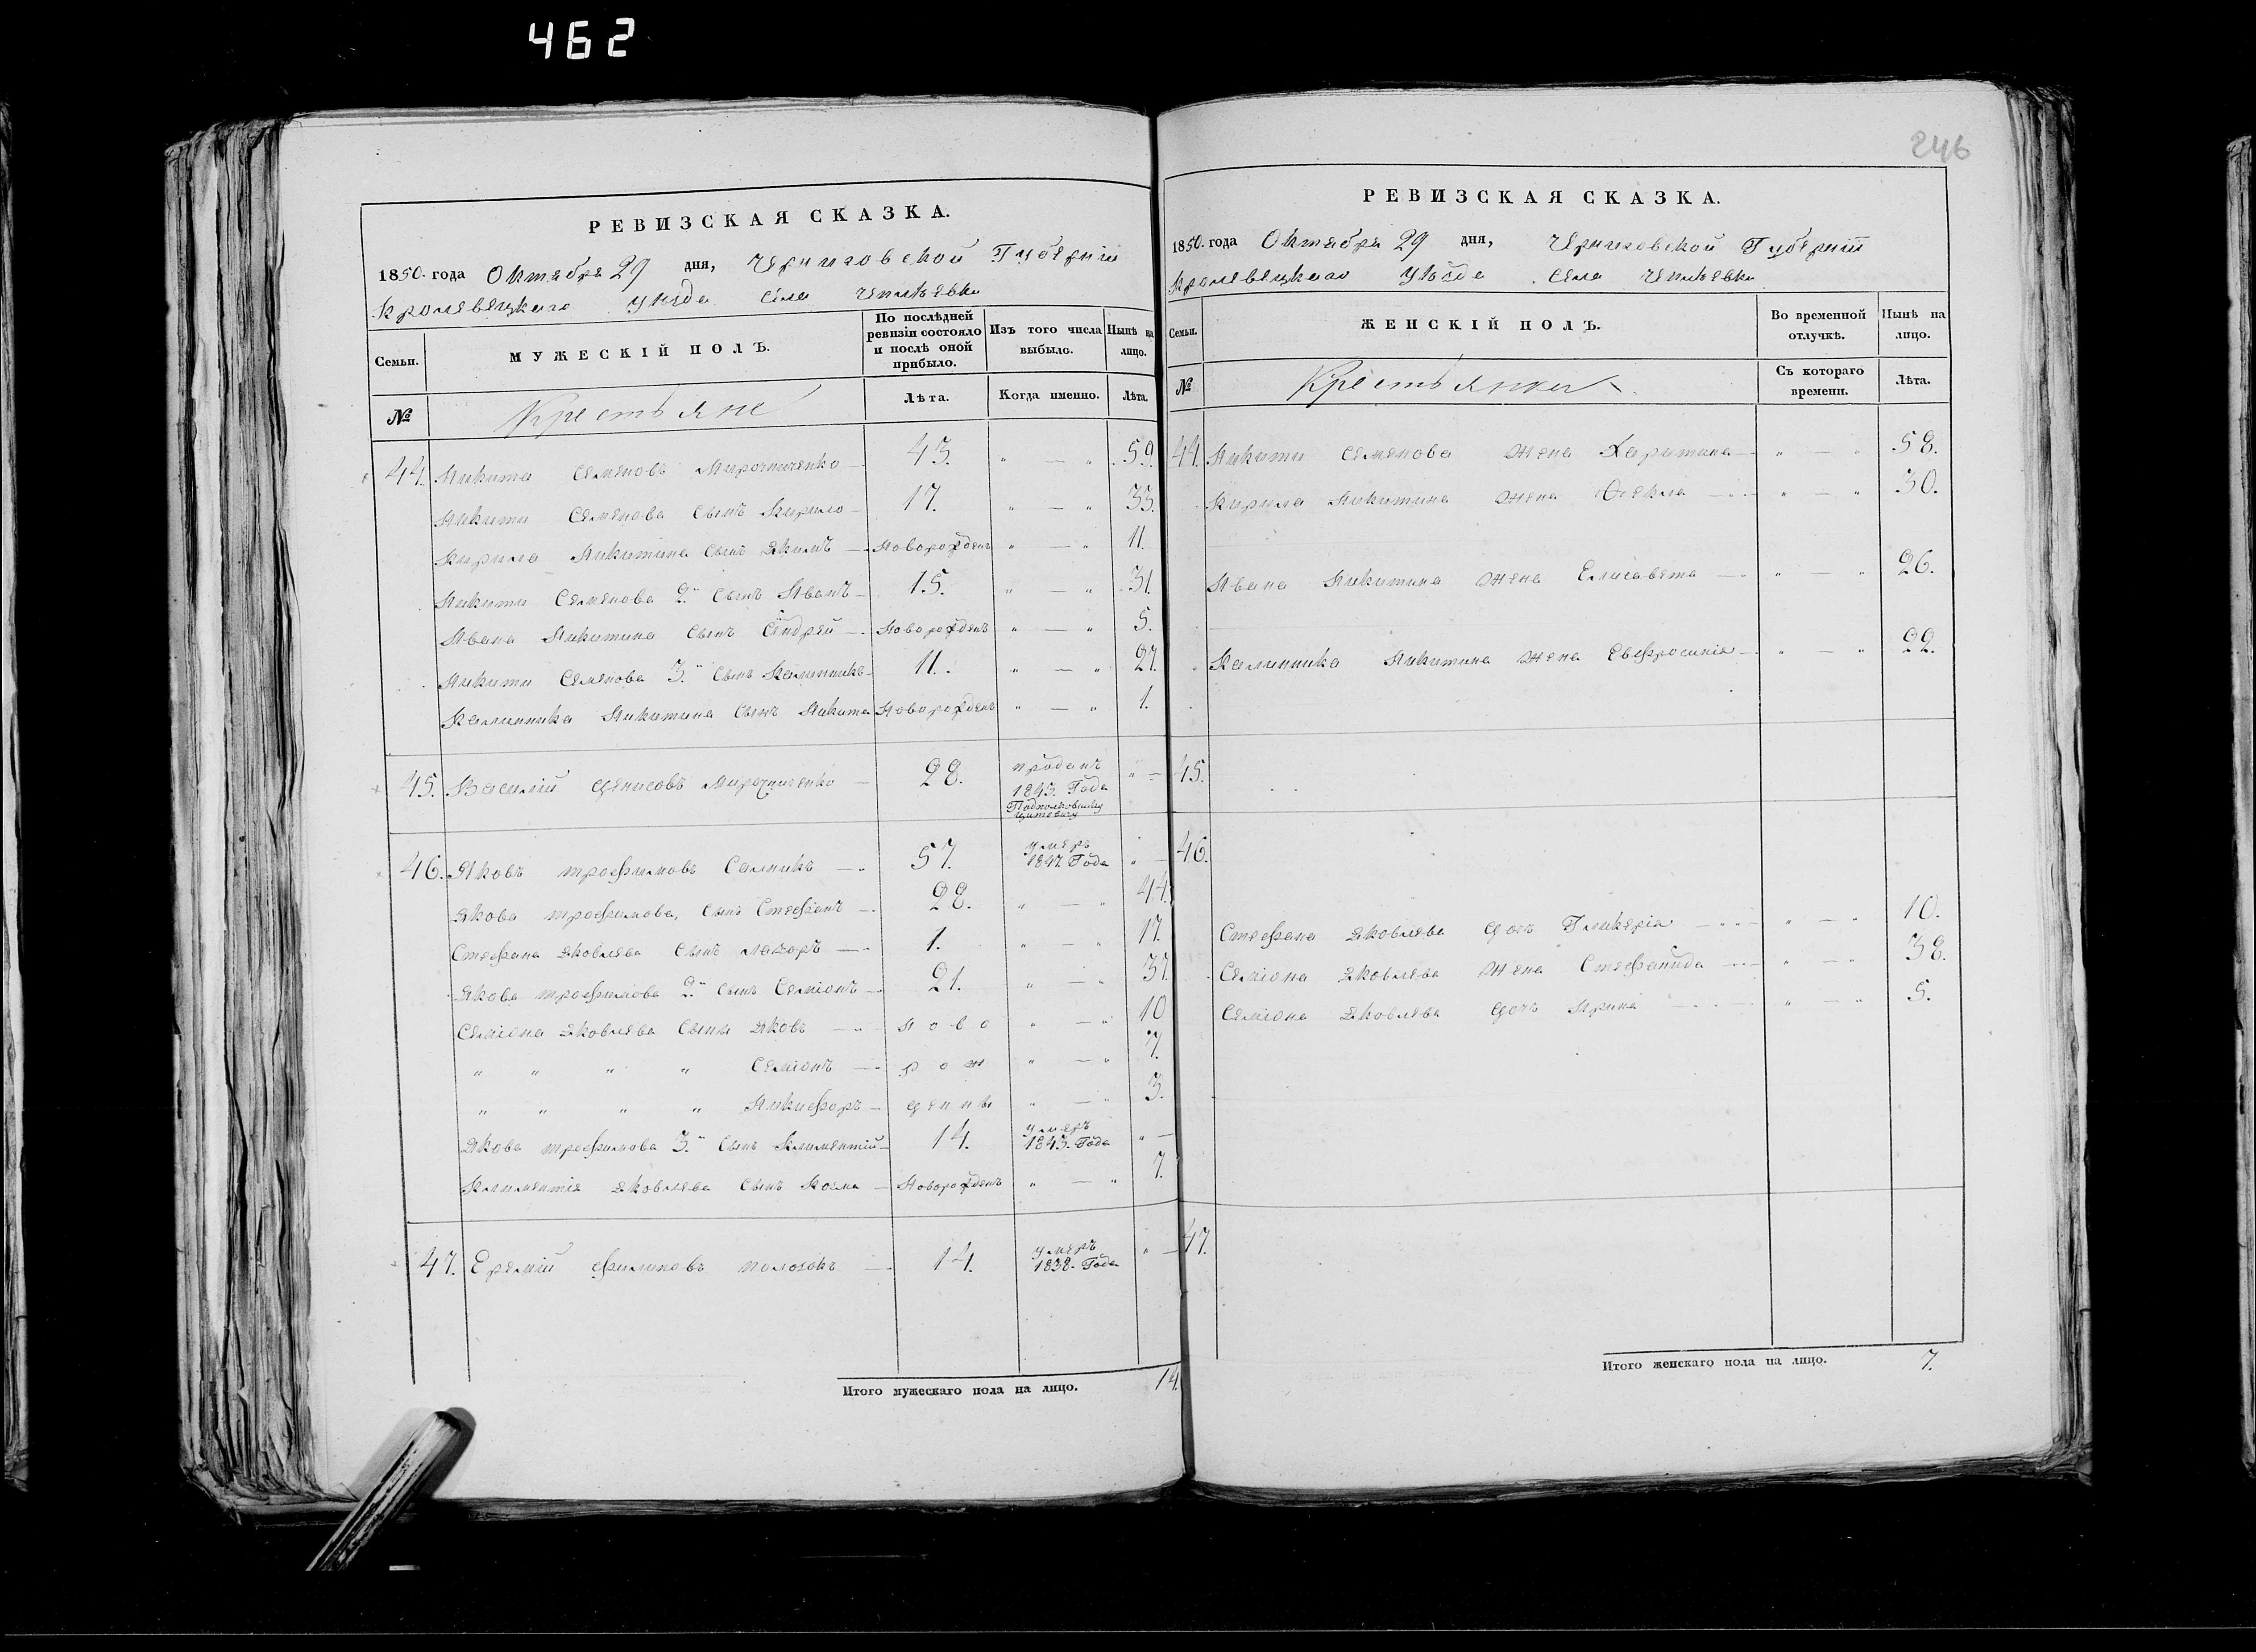 462
246
РЕВИЗСКАЯ СКАЗКА.
1850. года Октября 29 дня, Черниговской Губерніи
Кролевецкаго уѣзда села Чепліевки
Семьи.
МУЖЕСКІЙ ПОЛЪ.
По послѣдней ревизіи состояло и послѣ оной прибыло.
Изъ того числа выбыло.
Нынѣ на лицо.
№
Крестьяне
Лѣта.
Когда именно.
Лѣта.
44. Никита Семеновъ Мирочниченко 43. " — " 59.
Никиты Семенова сынъ Кирило 17. " — " 33.
Кирила Никитина сынъ Якимъ Новорожденъ " — " 11.
Никиты Семенова 2й сынъ Иванъ 15. " — " 31.
Ивана Никитина сынъ Андрей Новорожденъ " — " 5.
Никиты Семенова 3й сынъ Калинникъ 11. " — " 27.
Калинника Никитина сынъ Никита Новорожденъ " — " 1.
45. Василій Денисовъ Мирочниченко 28. проданъ 1843. Года Подполковнику " —
46. Яковъ Трофимовъ Салникъ 57. умеръ 1847. Года " —
Якова Трофимова, сынъ Стефанъ 28. " — " 44.
Стефана Яковлева сынъ Лазоръ 1. " — " 17.
Якова Трофимова 2й сынъ Семіонъ 21. " — " 37.
Семіона Яковлева сыны Яковъ ново " — " 10
" " " " Семіонъ рож " — " 7.
" " " " Никифоръ денны " — " 3.
Якова Трофимова 3й сынъ Климентій 14. умеръ 1843. Года " —
Климентія Яковлева сынъ Козма Новорожденъ " — " 7.
47. Еремій Филиповъ Полозокъ 14. умеръ 1838. Года " —
Итого мужескаго пола на лицо. 14.
РЕВИЗСКАЯ СКАЗКА.
1850. года Октября 29 дня, Черниговской Губерніи
Кролевецкаго уѣзда села Чепліевки
Семьи.
ЖЕНСКІЙ ПОЛЪ.
Во временной отлучкѣ.
Нынѣ на лицо.
№
Крестьянки
Съ котораго времени.
Лѣта.
44. Никиты Семенова жена Харитина " — " 58.
Кирила Никитина жена Фекла " — " 30.
Ивана Никитина жена Елисавета " — " 26.
Калинника Никитина жена Евфросинія " — " 22.
45.
46.
Стефана Яковлева дочь Гликерія " — " 10.
Семіона Яковлева жена Стефанида " — " 38.
Семіона Яковлева дочь Ирина " — " 5.
47.
Итого женскаго пола на лицо. 7.